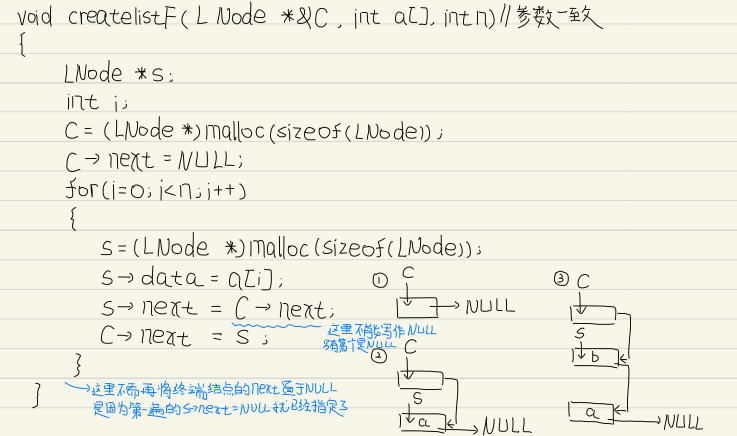 void createlistF( LNode *&C, int a[], int n)//参数一致
{
LNode *s;
int i;
C=(LNode *)malloc(sizeof(LNode));
C→next=NULL;
for(i=0;i<n;i++)
{
s=(LNode *)malloc(sizeof(LNode));
s→data=a[i];
s→next = C→next;
这里不能写作NULL
NULL
C→next = s;
}
→这里不需再将终端结点的next置于NULL
是因为第一遍的s→next=NULL就已经指定了
}
① C
→NULL
② C
s
a →NULL
③ C
s
b
a →NULL